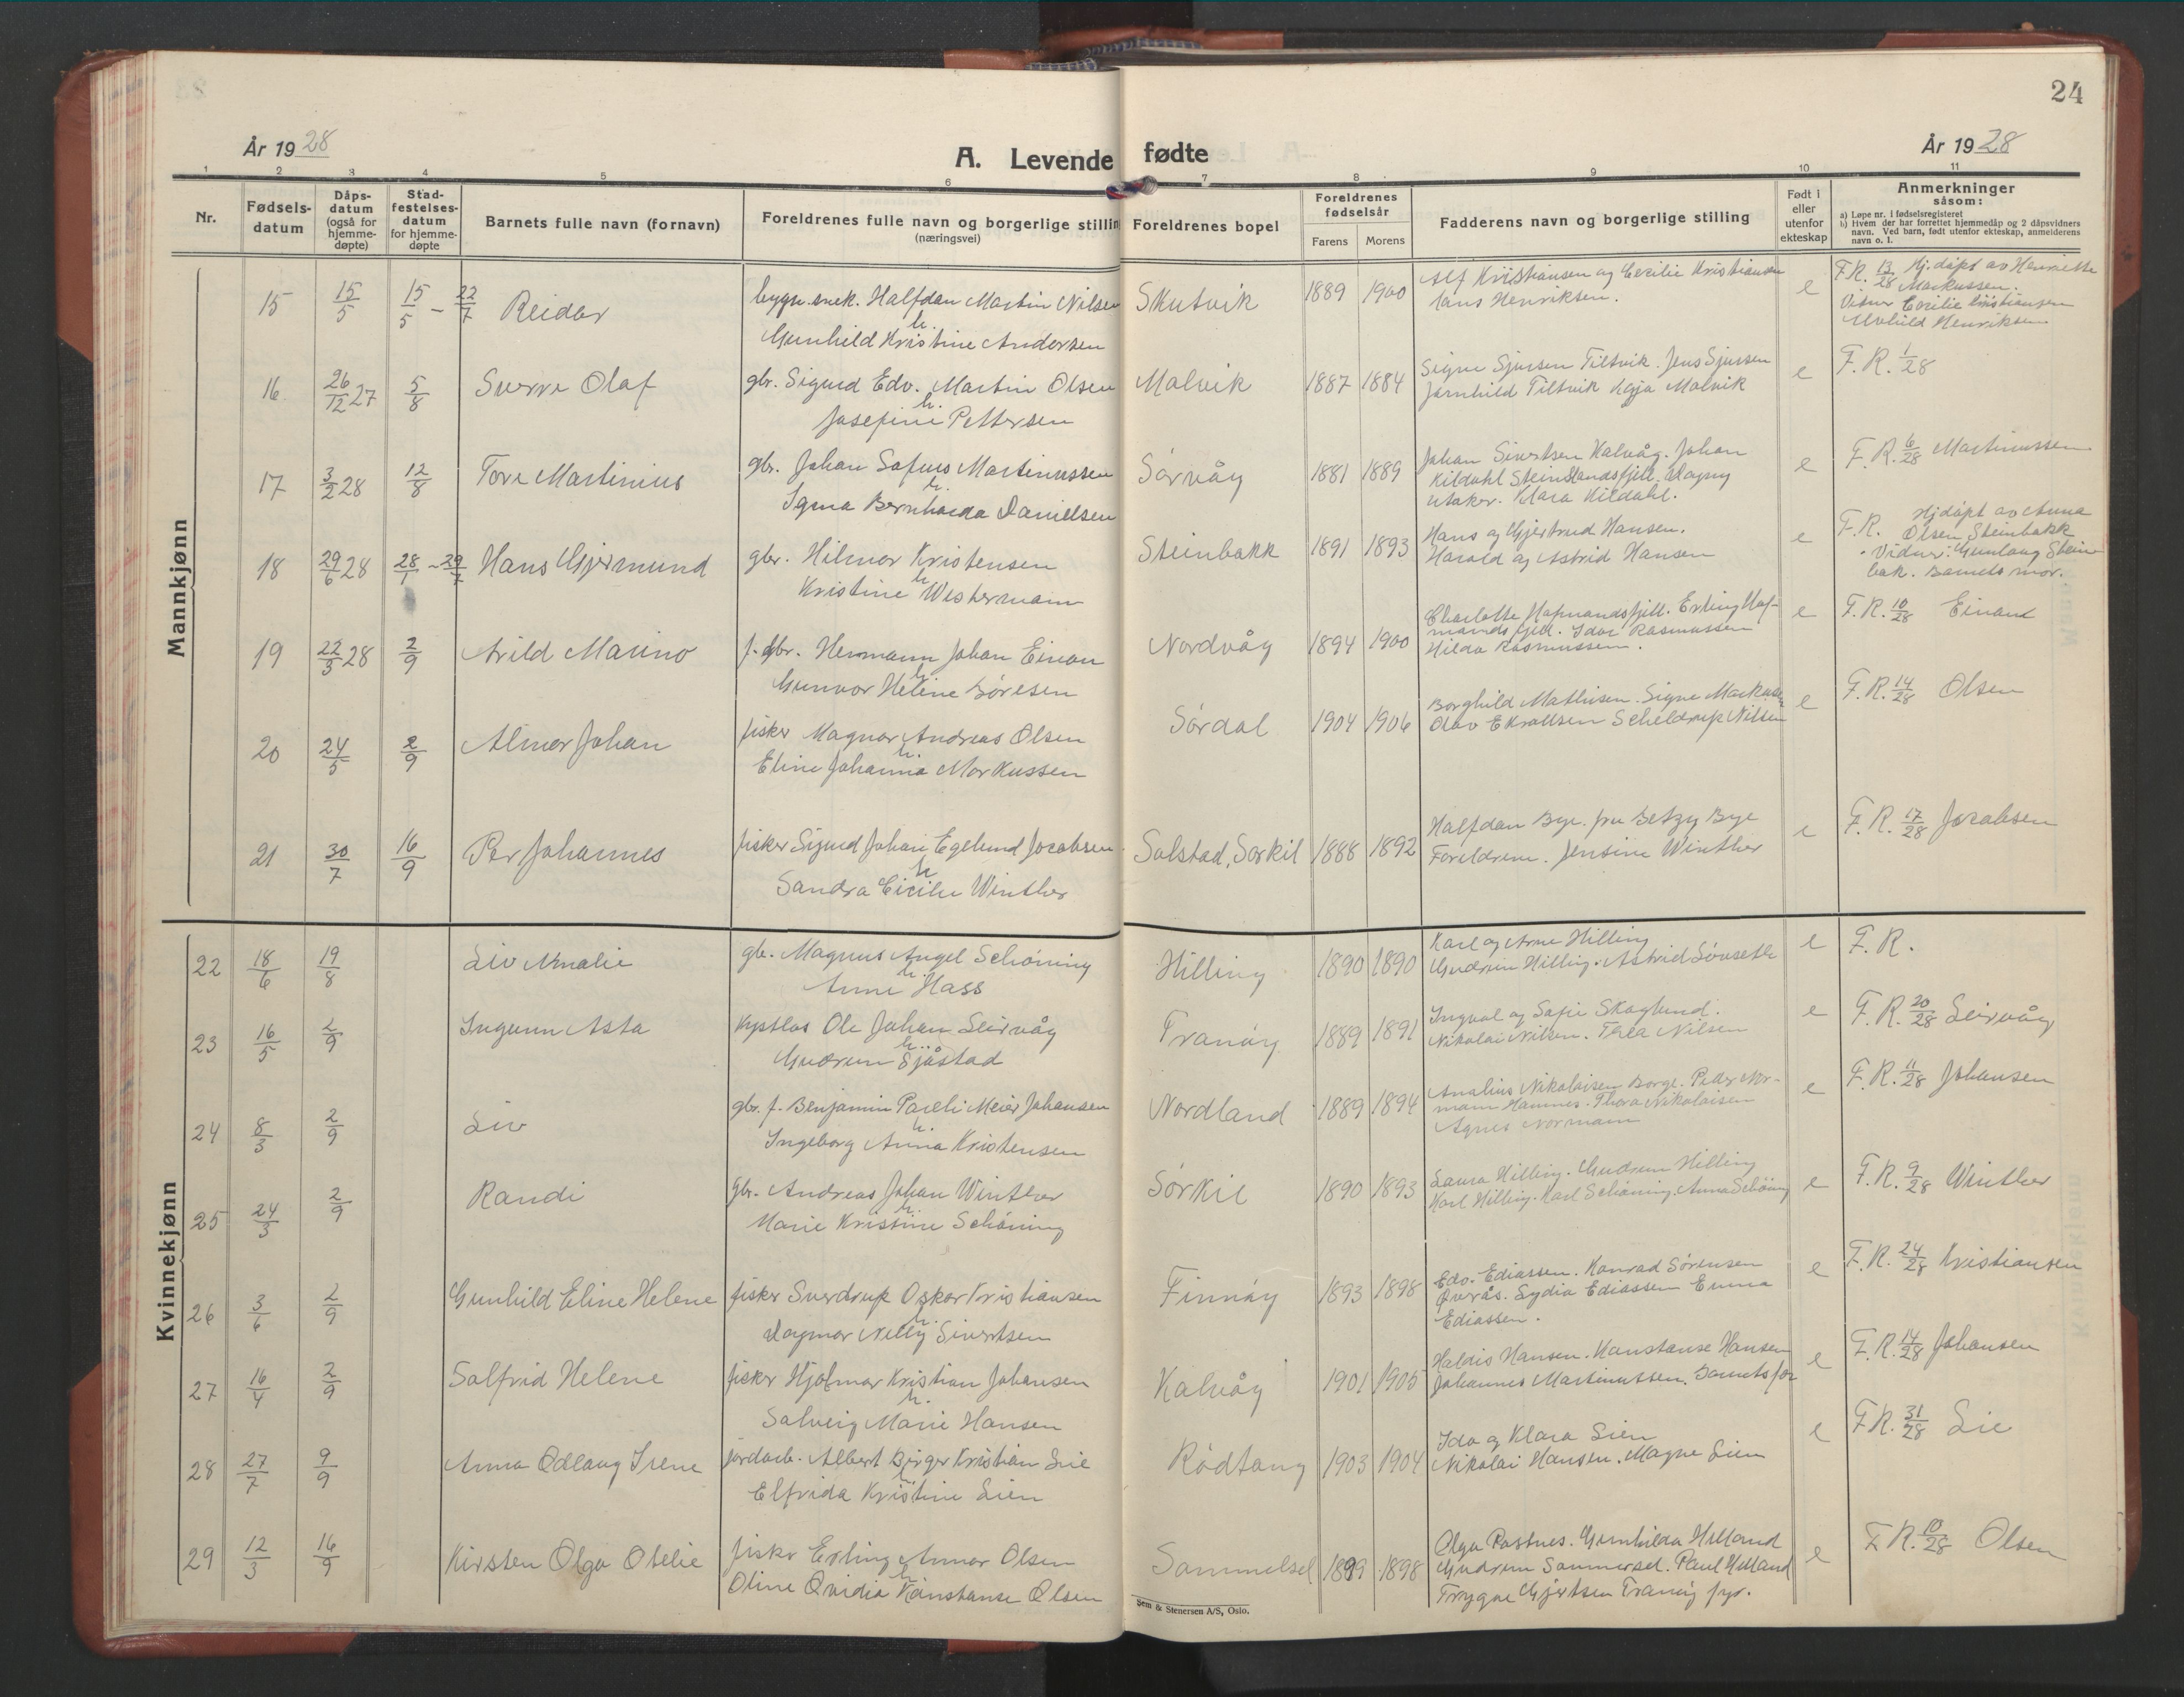 24
År 1928
A. Levende fødte
År 1928
1 2 3 4 5 6 7 8 9 10 11
Nr.
Fødsels-
datum
Dåps-
datum
(også for
hjemme-
døpte)
Stad-
festelses-
datum
for hjemme-
døpte
Barnets fulle navn (fornavn)
Foreldrenes fulle navn og borgerlige stillin
(næringsvei)
Foreldrenes bopel
Foreldrenes
fødselsår
Farens Morens
Fadderens navn og borgerlige stilling
Født i
eller
utenfor
ekteskap
Anmerkninger
såsom:
a) Løpe nr. i fødselsregisteret
b) Hvem der har forrettet hjemmedåp og 2 dåpsvidners
navn. Ved barn, født utenfor ekteskap, anmelderens
navn o. l.
Mannkjønn
15 15/5 15/5 - 22/7 Reidar
bygn.snek. Halfdan Martin Nilsen
h.
Gunhild Kristine Andersen
Skutvik 1889 1900
Alf Kristiansen og Cecilie Kristiansen
Hans Henriksen.
e
F.R. 13/28 Hj.døpt av Henriette
Markussen.
Vidner Cecilie Kristiansen
Alvhild Henriksen
16 26/12 27 5/8 Sverre Olaf
gbr. Sigurd Edv. Martin Olsen
h.
Josefine Pettersen
Malvik 1887 1884
Signe Sjursen Tiltvik. Jens Sjursen
Jarnhild Tiltvik Kaja Malvik
e F.R. 1/28
17 3/2 28 12/8 Tore Martinius
gbr. Johan Sofus Martinussen
h.
Signa Bernharda Danielsen
Sørvåg 1881 1889
Johan Sivertsen Kalvåg. Johan
Kildahl Steinslandsfjell. Dagny
Utaker. Klara Kildahl.
e F.R. 6/28 Martinussen
18 29/6 28 28/1 - 29/7 Hans Gjermund
gbr. Hilmar Kristensen
h
Kristine Westermann
Steinbakk 1891 1893
Hans og Gjertrud Hansen.
Harald og Astrid Hansen
e
F.R. Hjdøpt av Anna
Olsen Steinbakk
Vidner: Gunlaug Stein-
bak. Barnets mor.
19 22/3 28 2/9 Arild Marino
f. gbr. Hermann Johan Einan
h
Gunvor Heline Børesen
Nordvåg 1894 1900
Charlotte Hafmandsfjell. Erling Haf-
mandsfjell. Idar Rasmussen
Hilda Rasmussen.
e F.R. 10/28 Einand
20 24/5 2/9 Almar Johan
fisker Magnar Andreas Olsen
h.
Eline Johanna Markussen
Sørdal 1904 1906
Borghild Mathisen. Signe Markussen
Olav Ekrollsen Scheldrup Nilsen
e F.R. 14/28 Olsen
21 30/7 16/9 Per Johannes
fisker Sigurd Johan Egelund Jocabsen
h
Sandra Cicilie Winther
Solstad, Sørkil 1888 1892
Halfdan Bye. fru Betzy Bye
Foreldrene. Jensine Winther
e F.R. 17/28 Jocabsen
Kvinnekjønn
22 18/6 19/8 Liv Amalie
gb. Magnus Angel Schøning
h.
Anne Hass
Hilling 1890 1890
Karl og Arne Hilling
Gudrun Hilling. Astrid Sønseth
e F.R.
23 16/5 2/9 Ingunn Asta
Kystlos Ole Johan Leirvåg
h.
Gudrun Sjåstad
Tranøy 1889 1891
Ingval og Sofie Skoglund.
Nikolai Nilsen. Thea Nilsen
e F.R. 20/28 Leirvåg
24 8/3 2/9 Liv
gbr. f. Benjamin Pareli Meier Johansen
h.
Ingeborg Anna Kristensen
Nordland 1889 1894
Analius Nikolaisen Borge. Peder Nor-
mann Hamnes. Thora Nikolaisen
Agnes Normann
e F.R. 11/28 Johansen
25 24/3 2/9 Randi
gbr. Andreas Johan Winther
h.
Marie Kristine Schøning
Sørkil 1890 1893
Laura Hilling. Gudrun Hilling
Karl Hilling. Karl Schøning. Anna Schøning
e F.R. 9/28 Winther
26 3/6 2/9 Gunhild Eline Helene
fisker Sverdrup Oskar Kristiansen
h.
Dagmar Nelly Sivertsen
Finnøy 1893 1898
Edv. Ediassen. Konrad Sørensen
Øverås. Lydia Ediassen Emma
Ediassen.
e F.R. 24/28 Kristiansen
27 16/4 2/9 Solfrid Helene
fisker Hjalmar Kristian Johansen
h.
Solveig Marie Hansen
Kalvåg 1901 1905
Haldis Hansen. Konstanse Hansen
Johannes Martinussen. Barnets far
e F.R. 14/28 Johansen
28 27/7 9/9 Anna Odlaug Irene
jordarb. Albert Birger Kristian Lie
h
Elfrida Kristine Lien
Rødtang 1903 1904
Ida og Klara Lien
Nikolai Hansen. Magne Lien
e F.R. 31/28 Lie
29 12/3 16/9 Kirsten Olga Otelie
fisker Erling Annar Olsen
h
Oline Ovidia Konstanse Olsen
Sammelsel 1899 1898
Olga Rostnes. Gunhilda Helland
Gudrun Sommersel. Paul Helland
Trygve Gjertsen Tranøy fyr.
e F.R. 10/28 Olsen
Sem & Stenersen A/S, Oslo.